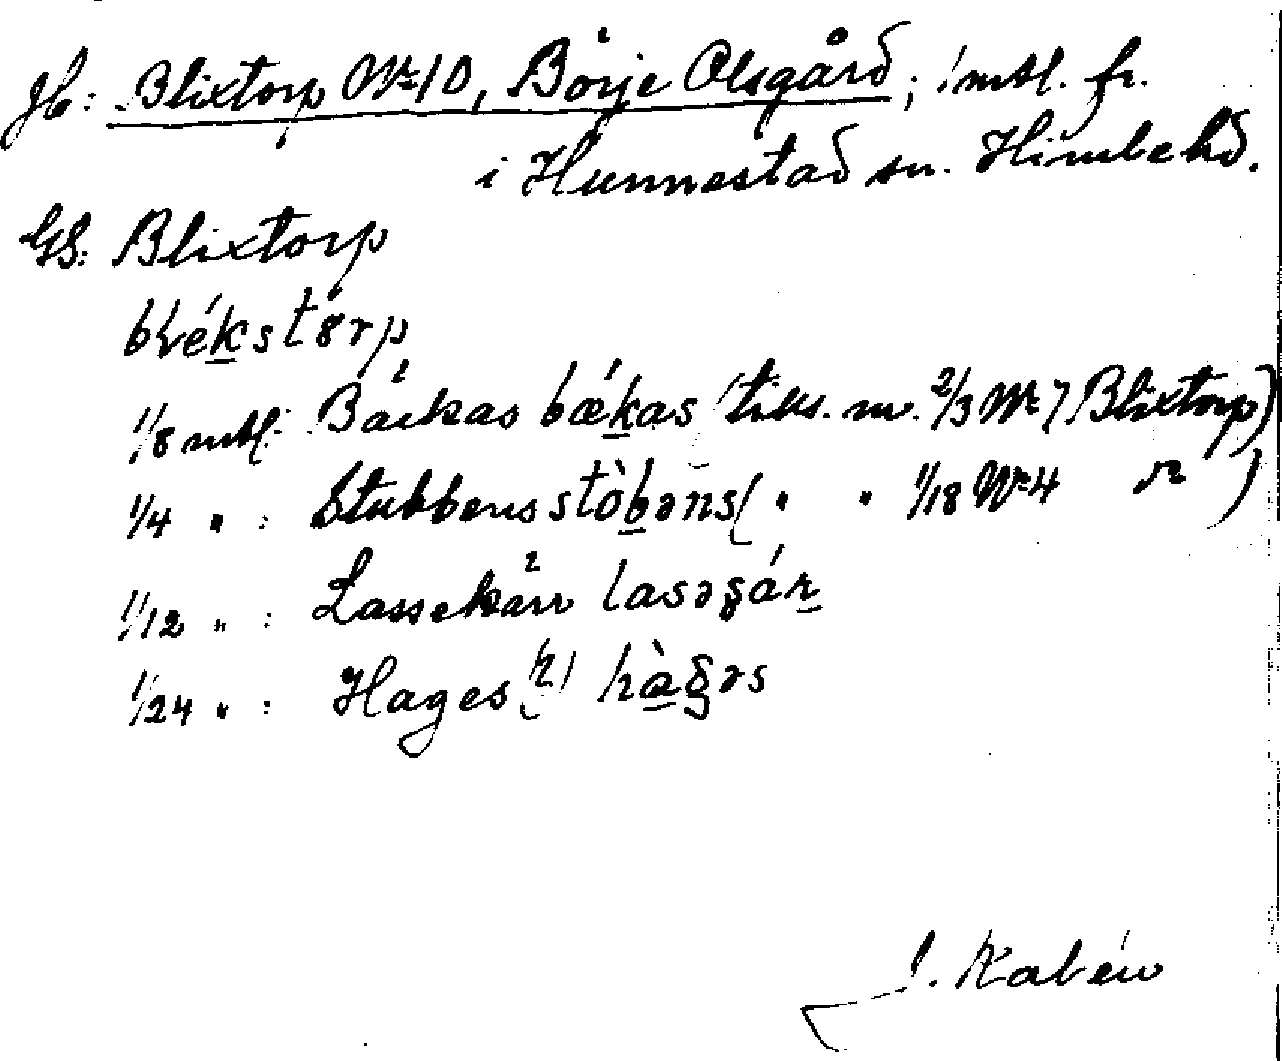 Jb: Blixtorp Nr 10, Börje Olsgård; 1 mtl. fr.
i Hunnestad sn. Himle hd.
GS: Blixtorp
blékstórp
1/8 mtl: Backas bækas (tills. m. 2/3 Nr 7 Blixtorp)
1/4 " : Stubbens stòbəns ( " " 1/18 Nr 4 " )
1/12 " : Lassekärr
1/24 " : Hages
J. Kalén